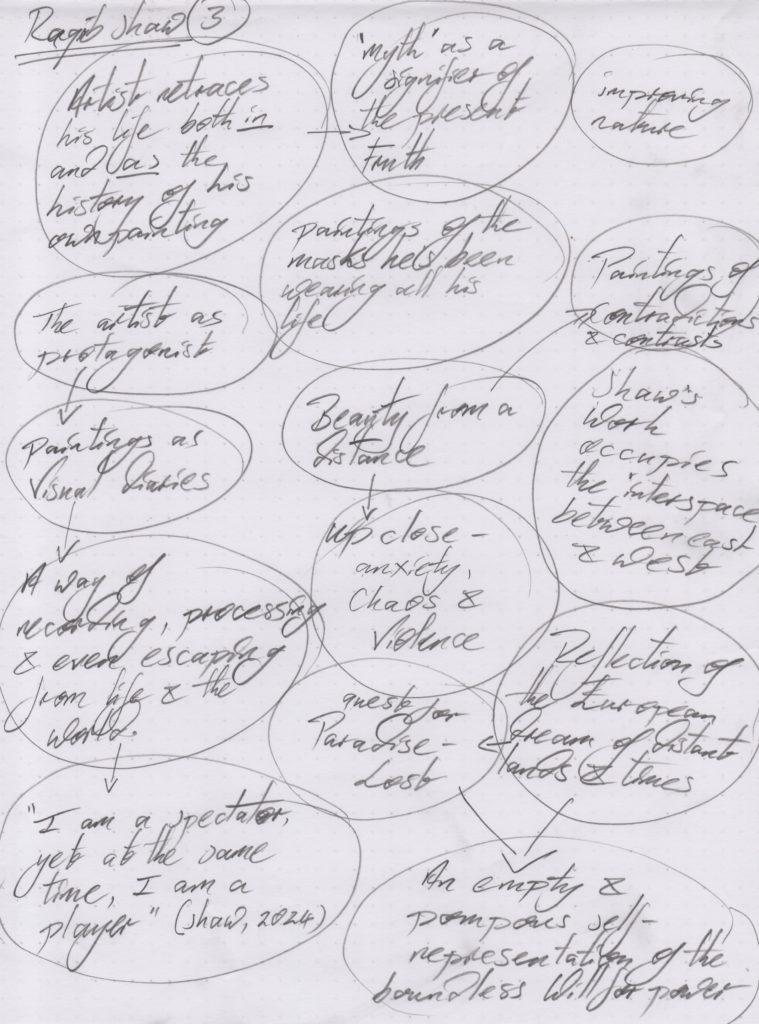 Raqib Shaw (3)
Artist retraces
his life both in
and as the
history of his
own painting
'myth' as a
signifier of
the present
truth
improving
nature
paintings of the
masks he's been
wearing all his
life
Paintings of
contradictions
& contrasts
The artist as
protagonist
Beauty from a
distance
Shaw's
work
occupies
the 'interspace'
between east
& west
Paintings as
Visual diaries
Up close -
anxiety,
Chaos &
Violence
A way of
recording, processing
& even escaping
from life & the
world.
Reflection of
the European
dream of distant
lands & times
quest for
Paradise -
Lost
"I am a spectator,
yet at the same
time, I am a
player" (Shaw, 2024)
An empty &
pompous self-
representation of the
boundless will for power